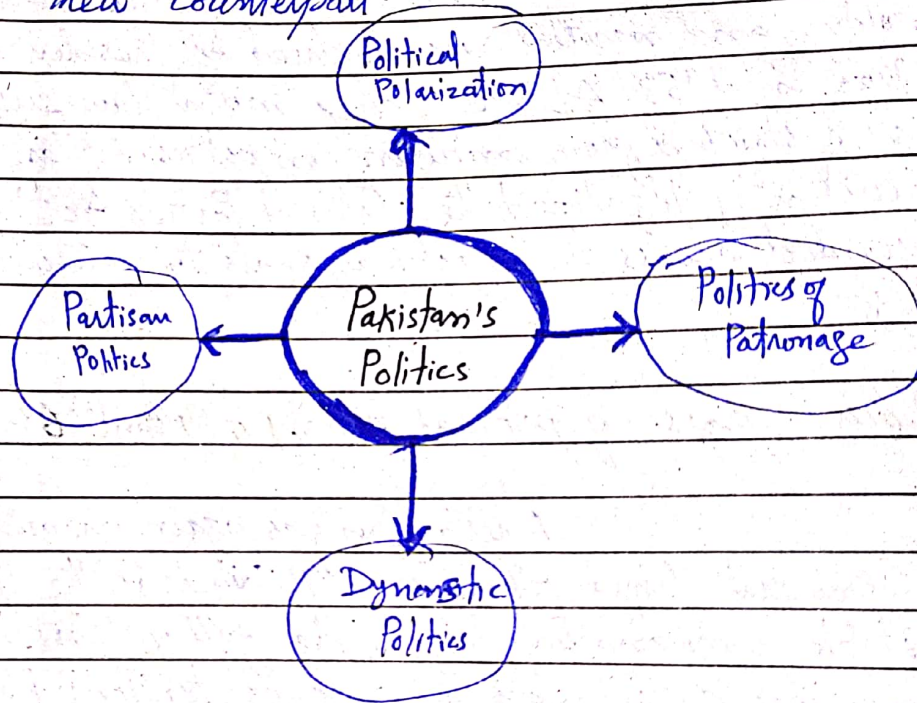 counterpart
Political
Polarization
Partisan
Politics
Pakistan's
Politics
Politics of
Patronage
Dynastic
Politics